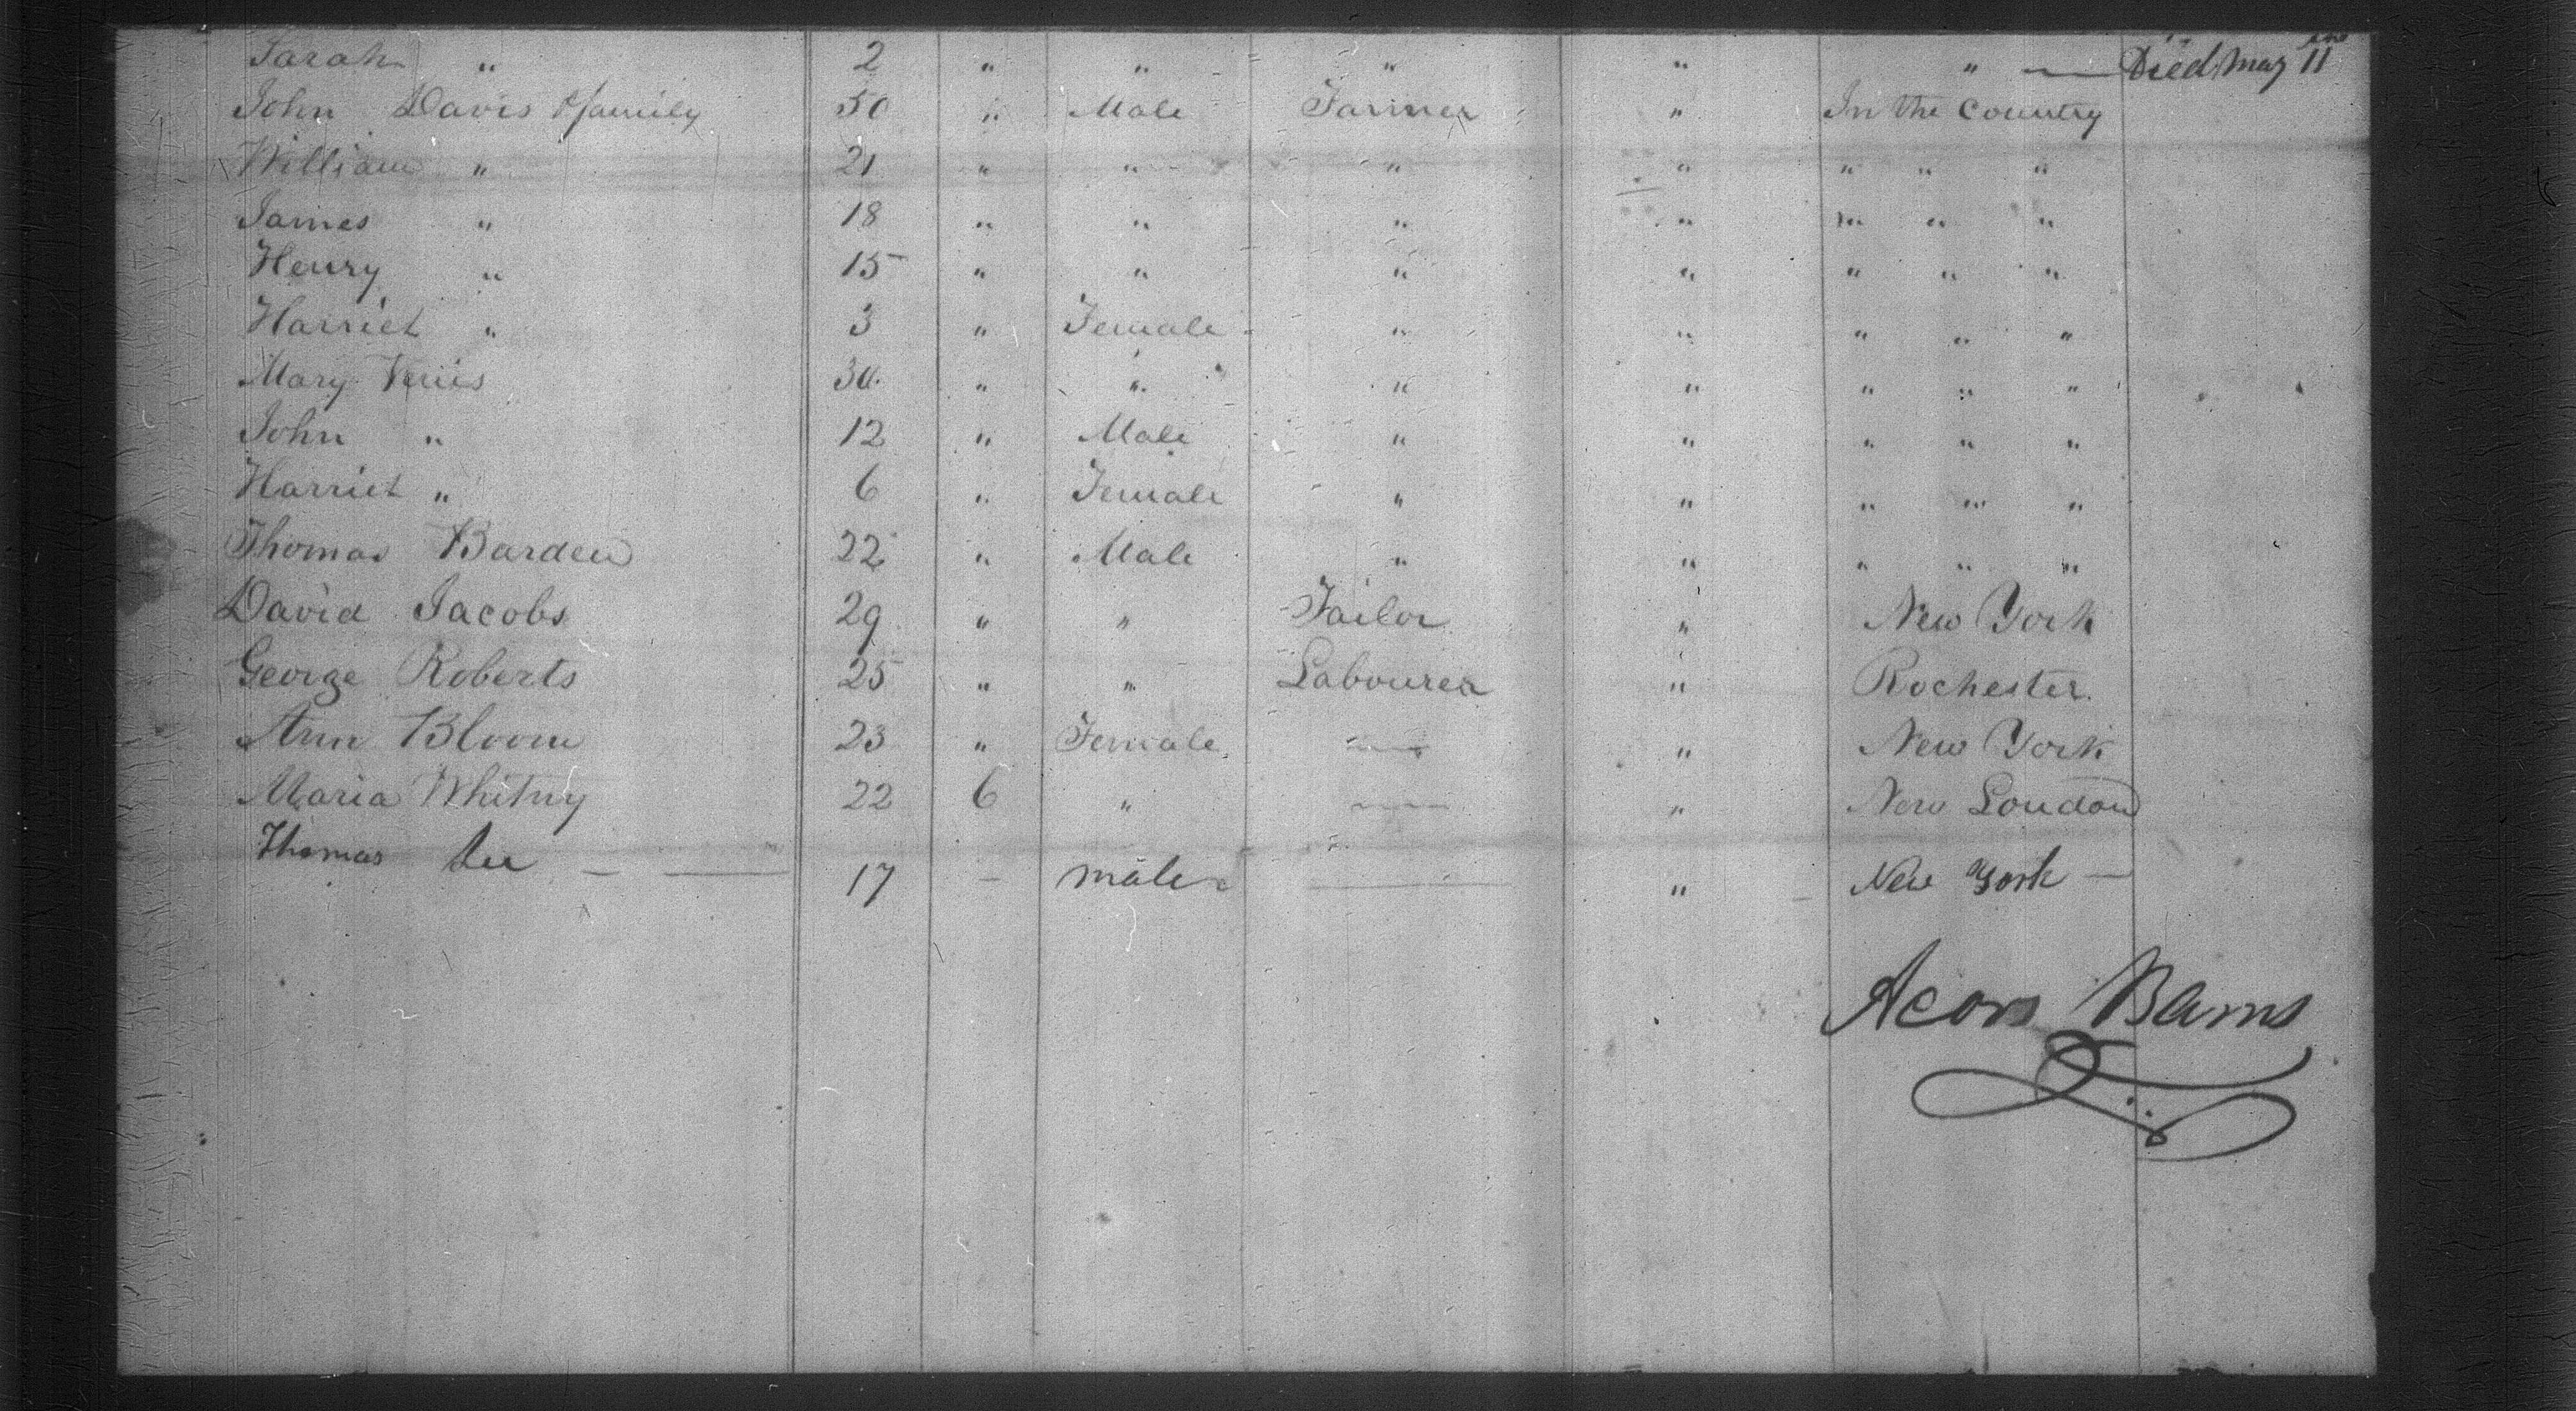 Sarah " 2 " " " " " — Died May 11
John Davis & family 50 " Male Farmer " In the Country
William " 21 " " " " " " "
James " 18 " " " " " " "
Henry " 15 " " " " " " "
Harriet " 3 " Female " " " " "
Mary 30 " " " " " " "
John " 12 " Male " " " " "
Harriet " 6 " Female " " " " "
Thomas Barden 22 " Male " " " " "
David Jacobs 29 " " Tailor " New York
George Roberts 25 " " Labourer " Rochester.
Ann Bloom 23 " Female — " New York
Maria Whitny 22 6 " — " New London
Thomas Lee — — 17 — male — " New York —
Acors Barns